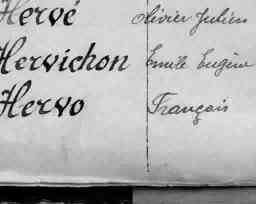 Hervé Olivier Julien
Hervichon Emile Eugène
Hervo François